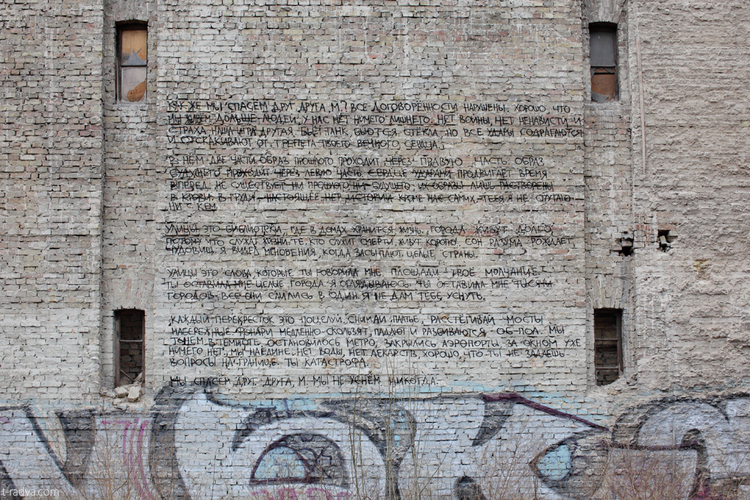 КАК ЖЕ МЫ СПАСЕМ ДРУГ ДРУГА, М.? ВСЕ ДОГОВОРЕННОСТИ НАРУШЕНЫ. ХОРОШО, ЧТО
МЫ ДОЛЬШЕ ЛЮДЕЙ, У НАС НЕТ НИЧЕГО ЛИШНЕГО, НЕТ ВОЙНЫ, НЕТ НЕНАВИСТИ И
СТРАХА. НАША ИГРА ДРУГАЯ. БЬЕТ ТАНК, БЬЮТСЯ СТЕКЛА, НО ВСЕ УДАРЫ СОДРАГАЮТСЯ
И ОТСКАКИВАЮТ ОТ ТРЕПЕТА ТВОЕГО ВЕЧНОГО СЕРДЦА.
В НЕМ ДВЕ ЧАСТИ. ОБРАЗ ПРОШЛОГО ПРОХОДИТ ЧЕРЕЗ ПРАВУЮ ЧАСТЬ, ОБРАЗ
БУДУЩЕГО ПРОХОДИТ ЧЕРЕЗ ЛЕВУЮ ЧАСТЬ. СЕРДЦЕ УДАРАМИ ПРОДВИГАЕТ ВРЕМЯ
ВПЕРЕД. НЕ СУЩЕСТВУЕТ НИ ПРОШЛОГО НИ БУДУЩЕГО, ИХ ОБРАЗЫ ЛИШЬ РАСТВОРЕНЫ
В КРОВИ. В ГРУДИ НАСТОЯЩЕЕ. НЕТ ИСТОРИИ КРОМЕ НАС САМИХ. ТЕБЯ Я НЕ СПУТАЮ
НИ С КЕМ.
УЛИЦЫ ЭТО БИБЛИОТЕКИ, ГДЕ В ДОМАХ ХРАНИТСЯ ЖИЗНЬ. ГОРОДА ЖИВУТ ДОЛГО,
ПОТОМУ ЧТО СЛУЖАТ ЖИЗНИ. ТЕ, КТО СЛУЖИТ СМЕРТИ, ЖИВУТ КОРОТКО. СОН РАЗУМА РОЖДАЕТ
ЧУДОВИЩ. Я ВИДЕЛ МГНОВЕНИЯ, КОГДА ЗАСЫПАЮТ ЦЕЛЫЕ СТРАНЫ.
УЛИЦЫ ЭТО СЛОВА, КОТОРЫЕ ТЫ ГОВОРИЛА МНЕ. ПЛОЩАДИ - ТВОЕ МОЛЧАНИЕ.
ТЫ ОСТАВИЛА МНЕ ЦЕЛЫЕ ГОРОДА. Я ОГЛЯДЫВАЮСЬ. ТЫ ОСТАВИЛА МНЕ ТЫСЯЧИ
ГОРОДОВ, ВСЕ ОНИ СЛИЛИСЬ В ОДИН. Я НЕ ДАМ ТЕБЕ УСНУТЬ.
КАЖДЫЙ ПЕРЕКРЕСТОК ЭТО ПОЦЕЛУЙ. СНИМАЙ ПЛАТЬЕ, РАССТЕГИВАЙ МОСТЫ,
НАБЕРЕЖНЫЕ. ФОНАРИ МЕДЛЕННО СКОЛЬЗЯТ, ПАДАЮТ И РАЗБИВАЮТСЯ ОБ ПОЛ. МЫ
ТОНЕМ В ТЕМНОТЕ. ОСТАНОВИЛОСЬ МЕТРО, ЗАКРЫЛИСЬ АЭРОПОРТЫ. ЗА ОКНОМ УЖЕ
НИЧЕГО НЕТ. МЫ НАЕДИНЕ. НЕТ ВОДЫ, НЕТ ЛЕКАРСТВ. ХОРОШО, ЧТО ТЫ НЕ ЗАДАЕШЬ
ВОПРОСЫ НА ГРАНИЦЕ. ТЫ КАТАСТРОФА.
МЫ СПАСЕМ ДРУГ ДРУГА, М. МЫ НЕ УСНЕМ НИКОГДА.
t-radya.com